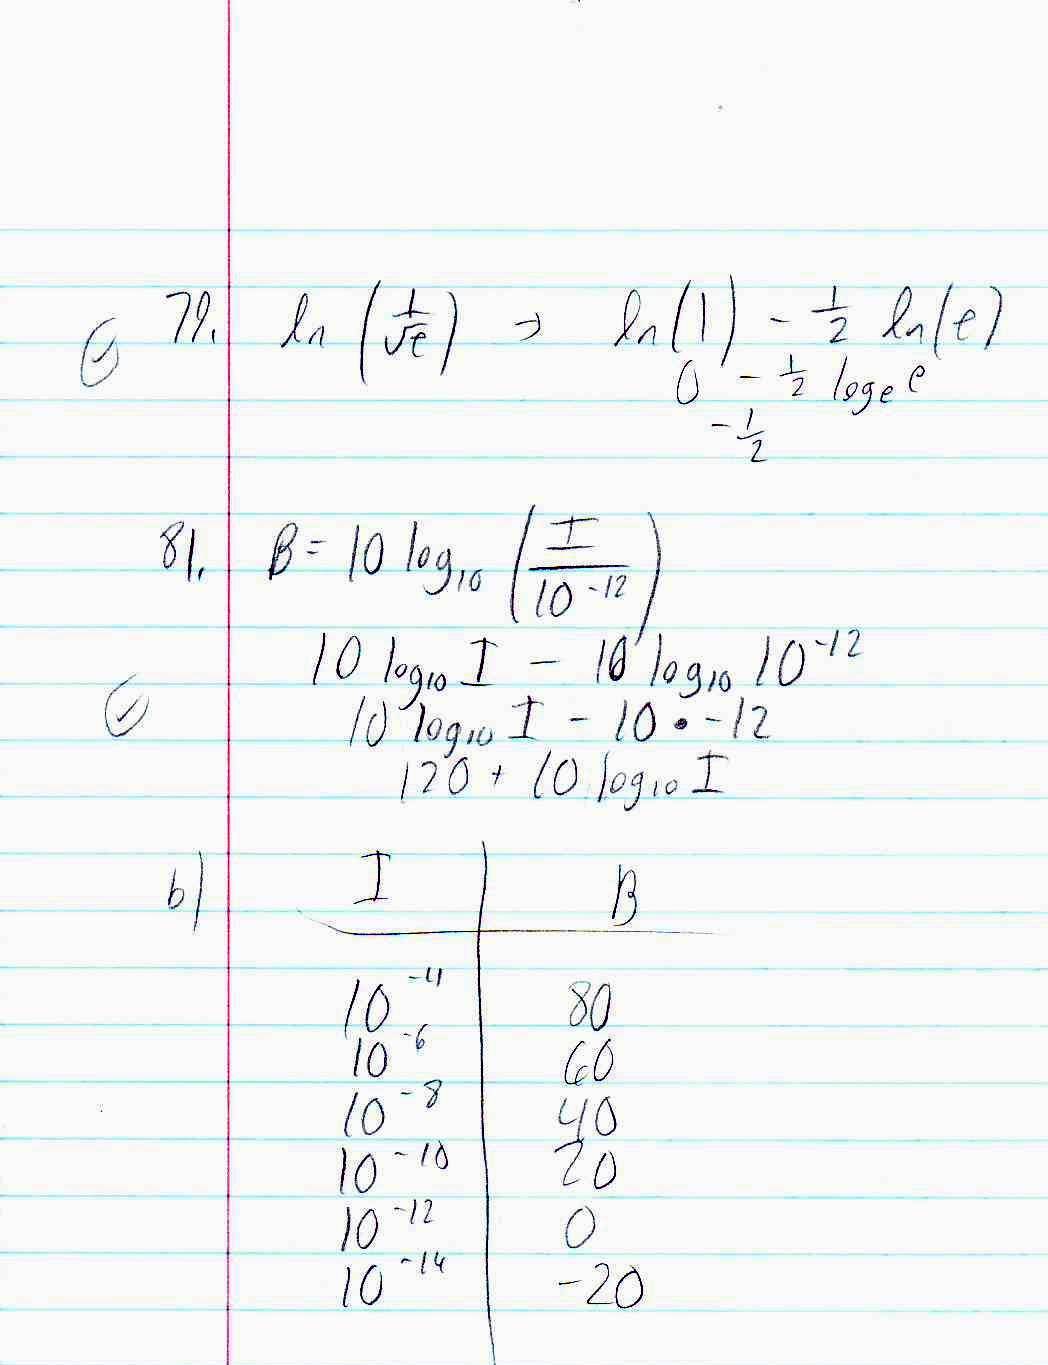 79. ln (1/√e) → ln(1) - 1/2 ln(e)
0 - 1/2 logₑ e
- 1/2
81. B = 10 log₁₀ (I / 10⁻¹²)
10 log₁₀ I - 10 log₁₀ 10⁻¹²
10 log₁₀ I - 10 • -12
120 + 10 log₁₀ I
b) I B
10⁻⁴ 80
10⁻⁶ 60
10⁻⁸ 40
10⁻¹⁰ 20
10⁻¹² 0
10⁻¹⁴ -20